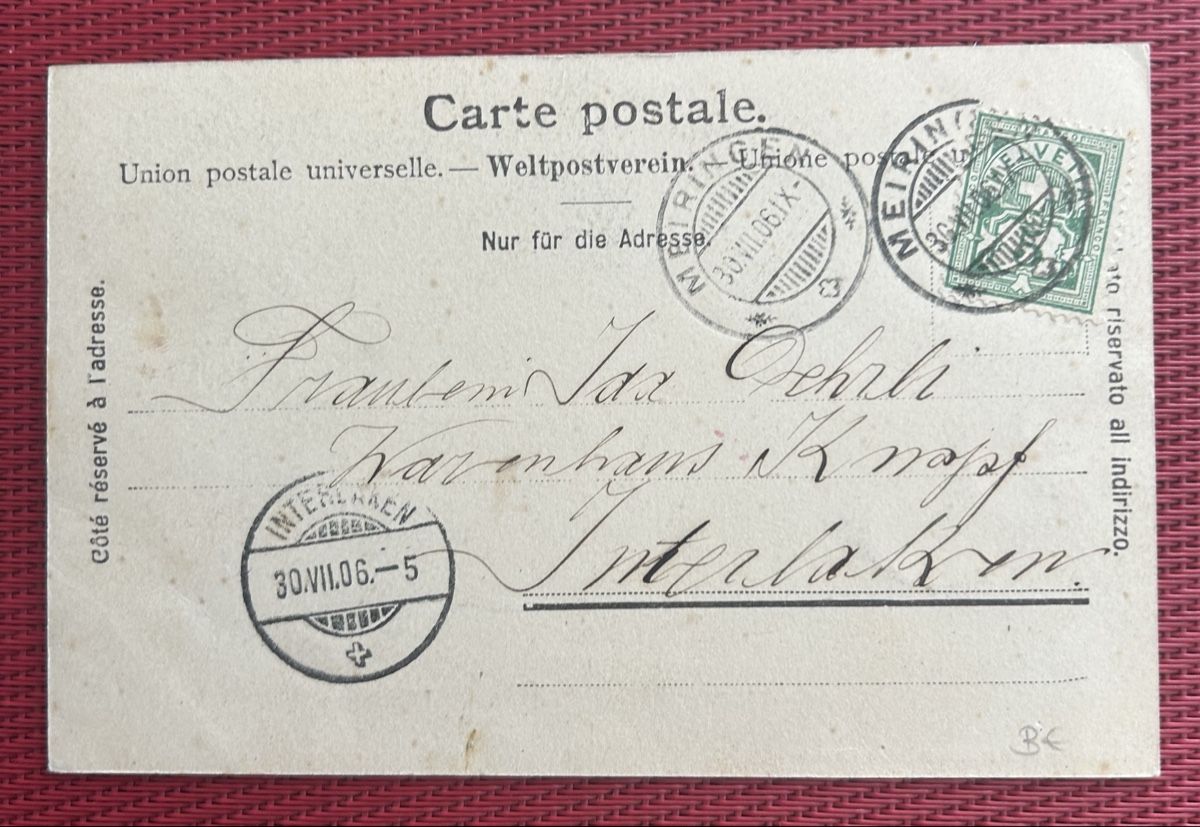 Carte postale.
Union postale universelle. — Weltpostverein. — Unione postale
Nur für die Adresse.
Côté réservé à l'adresse.
riservato all indirizzo.
MEIRINGEN
30.VII.06.IX-
MEIRINGEN
HELVETIA
FRANCO
FRANCO
Fraulein Ida Oehrli
Warenhaus Knopf
Interlaken.
INTERLAKEN
30.VII.06.-5